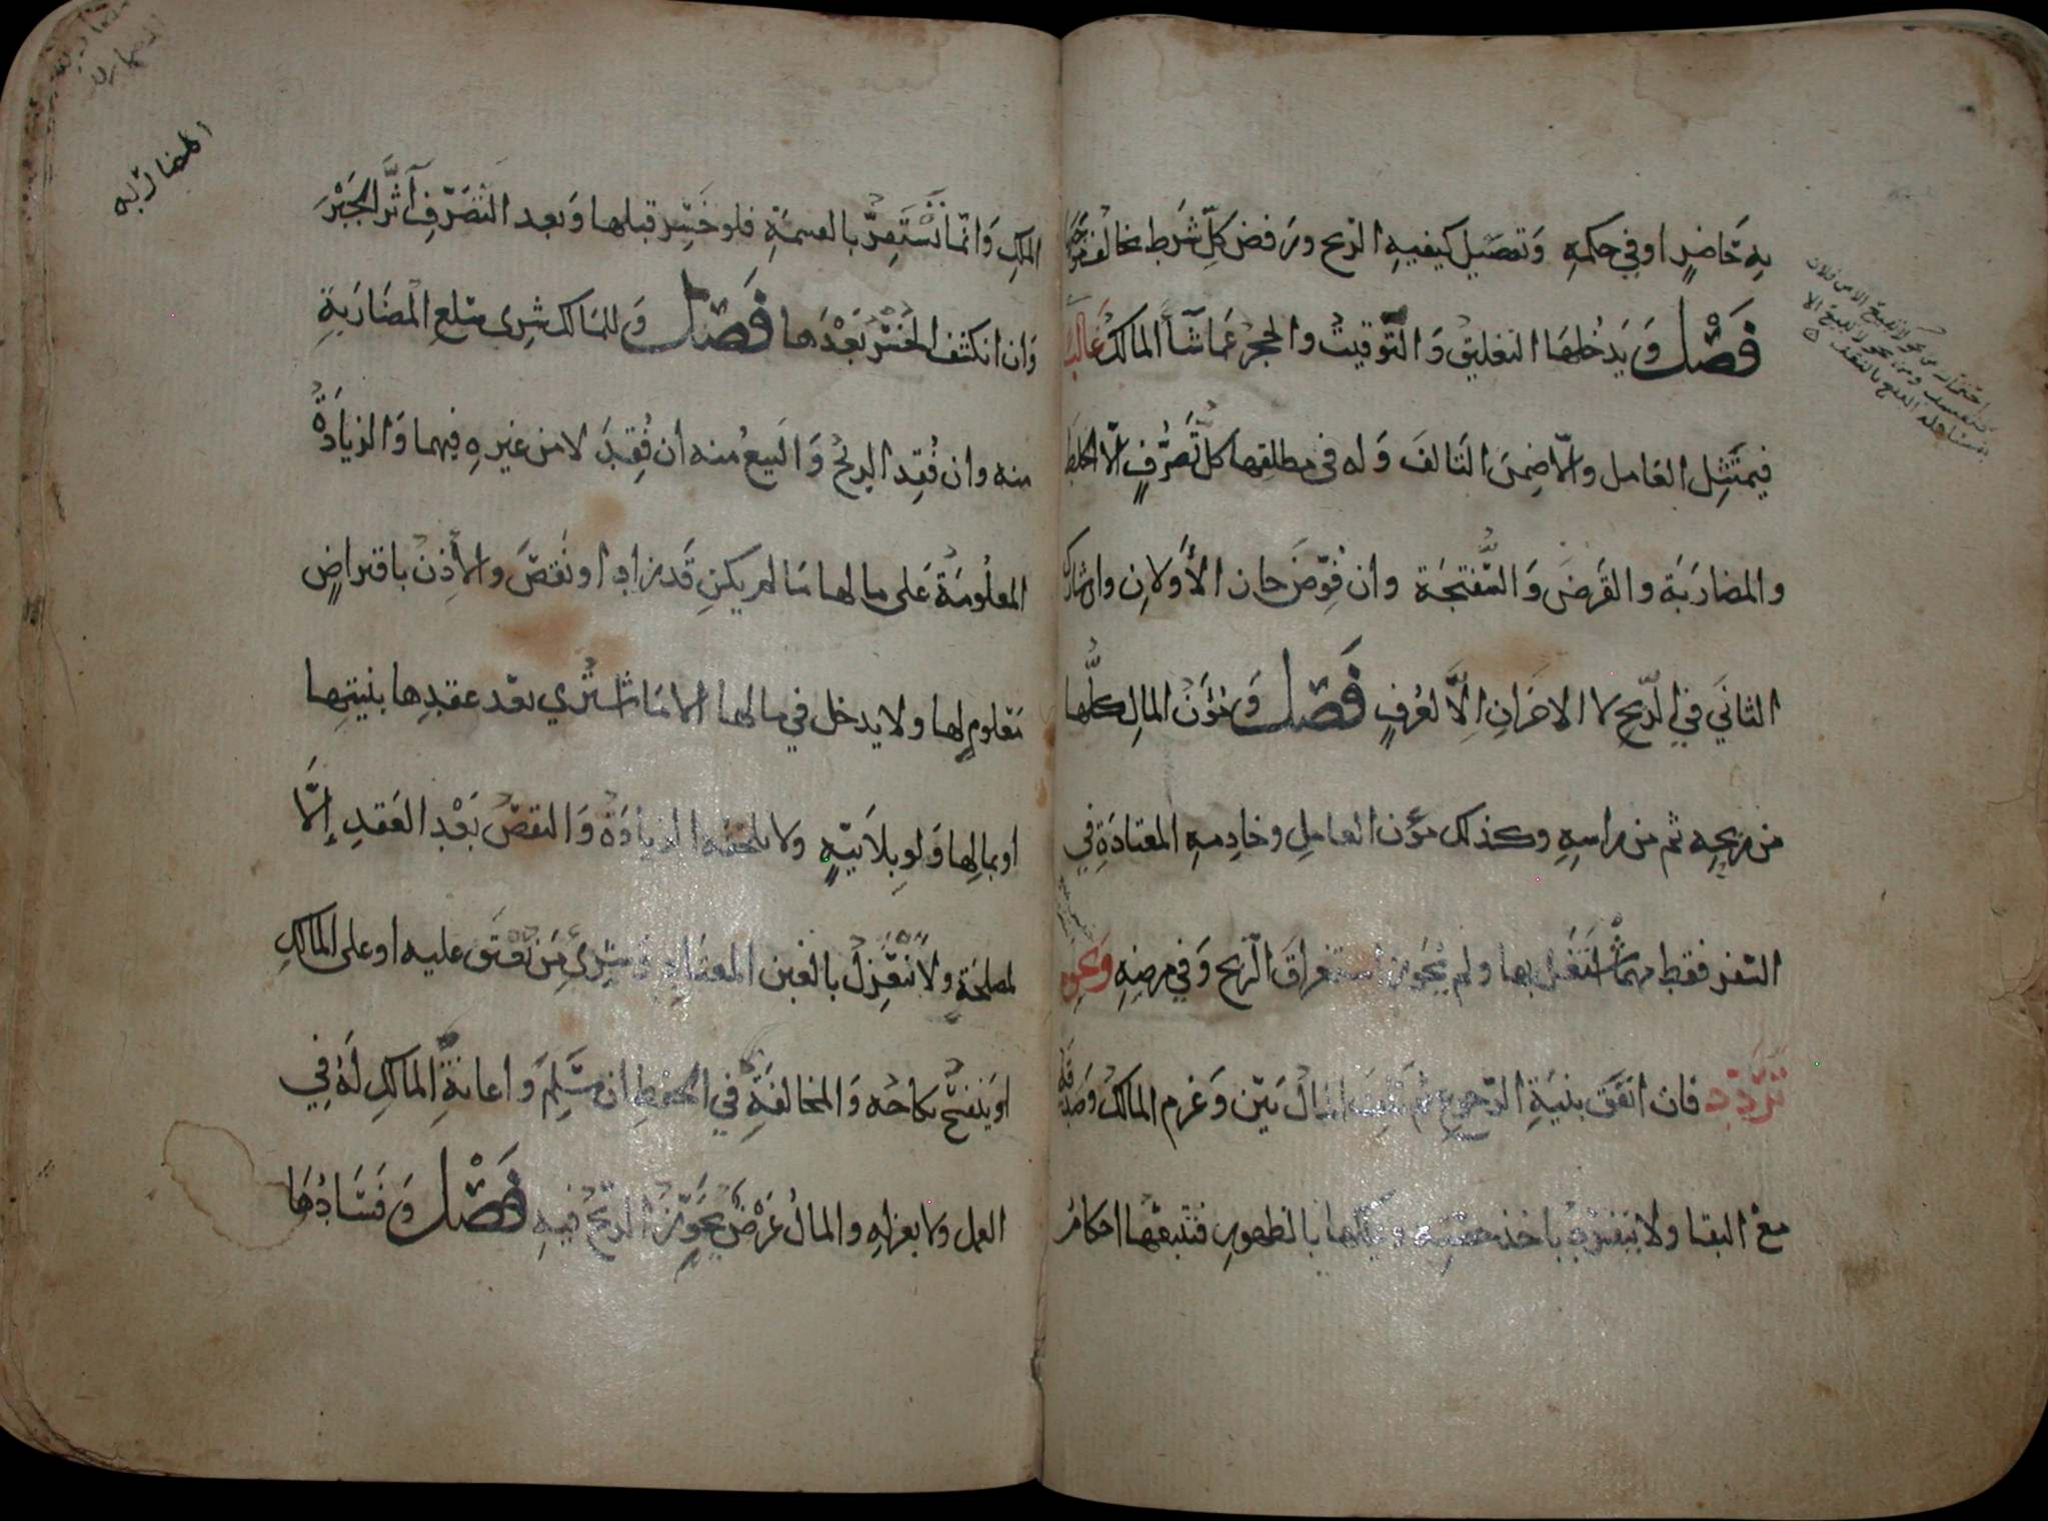 به حاضر او في حكمه وتفصيل كيفيه الربح ورفض كل شرط يخالف موجبها
فصل ويدخلها التعليق والتوقيت والحجر عما شآ المالك غالبا
فيمتثل العامل والا ضمن التالف وله في مطلقها كل تصرف الا الخلط
والمضاربة والقرض والسفتجة وان فوض جاز الأولان وان شارك
الثاني في الربح لا الاخران إلا لعرف فصل ومؤن المال كلها
من ربحه ثم من راسه وكذلك مؤن العامل وخادمه المعتادة في
السفر فقط مهما اشتغل بها ولم يجوز استغراق الربح وفي مرضه ونحوه
تردد فان انفق بنية الرجوع ثم تلف المال بين وغرم المالك وصدقه
مع البقا ولا ينفرد باخذ حصته ويملكها بالظهور فتتبعها احكام
الملك وانما تستقر بالقسمة فلو خسر قبلها وبعد التصرف آثر الجبر
وان انكشف الخسر بعدها فصل وللمالك شرى سلع المضاربة
منه وان فقد الربح والبيع منه ان فقد لا من غيره فيهما والزيادة
المعلومة على مالها ما لم يكن قد زاد او نقص والإذن باقتراض
معلوم لها ولا يدخل في مالها الا ما اشترى بعد عقدها بنيتها
او بمالها ولو بلا نية ولا تلحقه الزيادة والنقص بعد العقد إلا
لمصلحة ولا ينعزل بالغبن المعتاد وشرى من يعتق عليه او على المالك
او ينفسخ نكاحه والمخالفة في الحفظ ان سلم واعانة المالك له في
العمل ولا بعزله والمال عرض يجوز الربح فيه فصل وفسادها
المضاربه